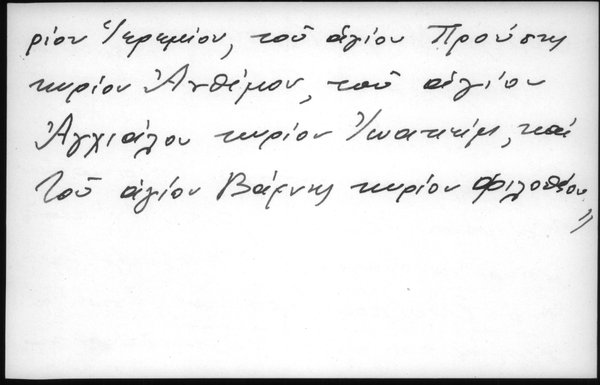 ρίου Ἱερεμίου, τοῦ ἁγίου Προύσης
κυρίου Ἀνθίμου, τοῦ ἁγίου
Ἀγχιάλου κυρίου Ἰωακείμ, καί
τοῦ ἁγίου Βάρνης κυρίου Φιλοθέου "